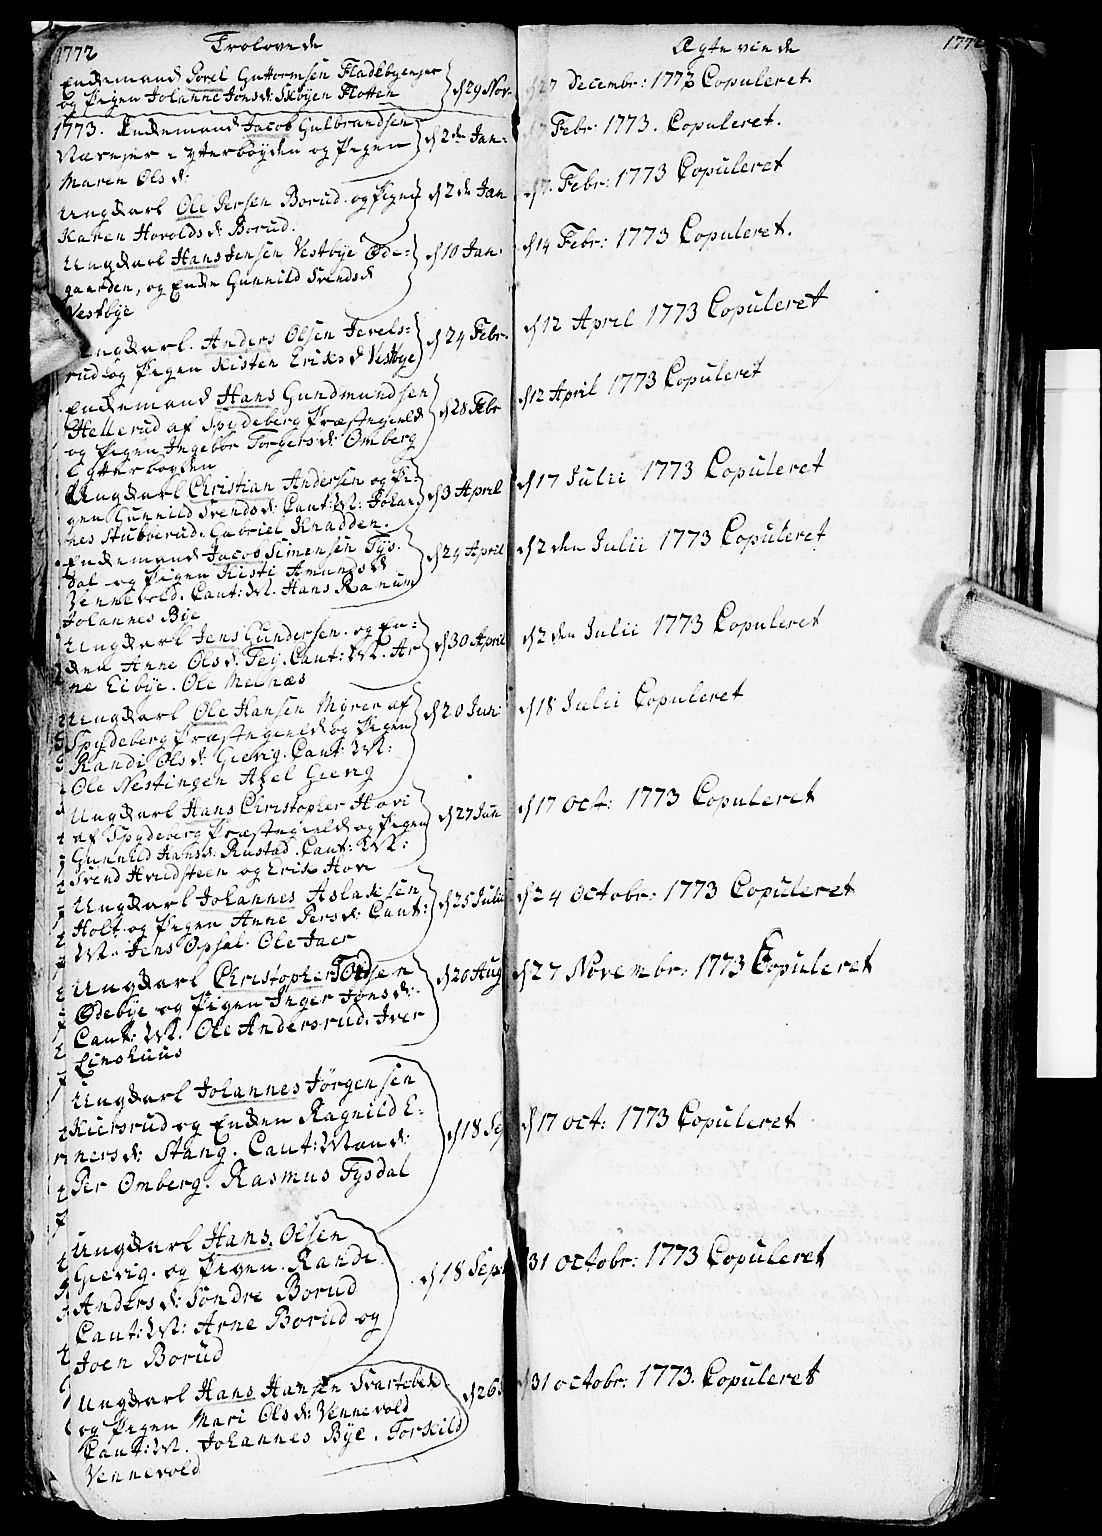 1772 Trolovede
Enkemand Porel Guttormsen Fladebyeejer
og Pigen Johanne Jonsd: Skøyen Flotten
d 29 Nov.
1773. Enkemand Jacob Gulbrandsen
Næreier i ytterbøyden og Pigen
Maren Olsd:
d 2de Jan:
Ungkarl Ole Persen Borud. og Pigen
Karen Horolds d: Borud.
d 2de Jan
Ungkarl Hans Jensen Vestbye Øde-
gaarden, og Enke Gunnild Svends d
Vestbye
d 10 Jan.
Ungkarl. Anders Olsen Jerels:
rud og Pigen Kisten Eriks d Vestbye
d 24 Febr.
Enkemand Hans Gundmundsen
Hellerud af Spydeberg Præstegield
og Pigen Ingebor Torgers d: Omberg
i ytterboyden
d 28 Febr
Ungkarl Christian Andersen og Pi-
gen Gunnild Svends d: Caut: M: Johan-
nes Stubberud. Gabriel Knadden.
d 3 April
Enkemand Jacob Simensen Tys-
dal og Pigen Kisti Amunds d
Vennevold. Caut: M. Hans Ranum
Johannes Bye
d 24 April
Ungkarl Jens Gundersen. og En-
ken Anne Ols d: Teig. Caut: M. Ar
ne Eibye. Ole Melnæs
d 30 April
Ungkarl Ole Hansen Myrer af
Spydeberg Præstegield og Pigen
Randi Ols d: Gievig. Caut: M:
Ole Nestingen Axel Gievig
d 20 Jun:
Ungkarl Hans Christopher Hovi
af Spydeberg Præstegield og Pigen
Gunnild Hans d: Rustad. Caut: M:
Svend Hvidsteen og Erik Hov
d 27 Jun
Ungkarl Johannes Aslaksen
Holt. og Pigen Anne Pers d: Caut:
M. Jens Opsal. Ole Jaer
d 25 Julii
Ungkarl Christopher Tordsen
Ødebye og Pigen Inger Jons d:
Caut: M. Ole Andersrud. Iver
Einshuus
d 20 Aug
Ungkarl Johannes Jørgensen
Kiersrud og Enken Ragnild E-
ners d: Stang. Caut: Mænd:
Per Omberg. Rasmus Tysdal
d 18 Se
Ungkarl Hans. Olsen
Gievig. og Pigen. Randi
Anders d: Søndre Borud
Caut: M: Arne Borud og
Joen Borud
d 18 Sept
Ungkarl Hans Hansen Svartebek
og Pigen Mari Ols d: Vennevold
Caut: M. Johannes Bye. Torkild
Vennevold
d 26
Ægteviede 177
d 27 Decembr: 1772 Copuleret
d 7 Febr: 1773. Copuleret.
d 7. Febr: 1773 Copuleret
d 14 Febr: 1773 Copuleret.
d 12 April 1773 Copuleret
d 12 April 1773 Copuleret
d 17 Julii 1773 Copuleret
d 2 den Julii 1773 Copuleret
d 2 den Julii 1773 Copuleret
d 18 Julii Copuleret
d 17 Oct: 1773 Copuleret
d 24 Octobr: 1773 Copuleret
d 27 Novembr: 1773 Copuleret
d 17 Oct: 1773 Copuleret
31 Octobr: 1773 Copuleret
31 Octobr: 1773. Copuleret